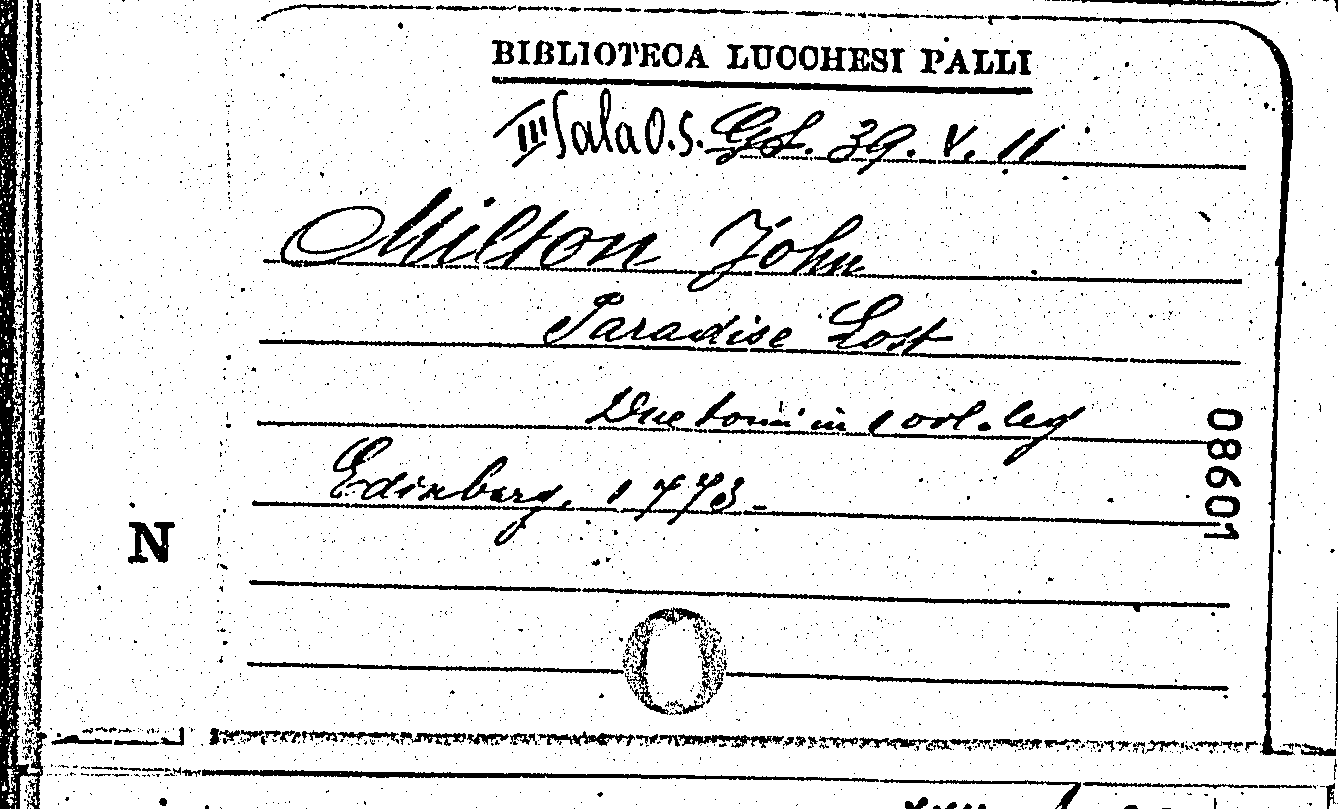 BIBLIOTECA LUCCHESI PALLI
III Sala O.S. 39. V. 11
Milton John
Paradise Lost
Due tomi in 1 vol. leg
Edinburg, 1773.
08601
N